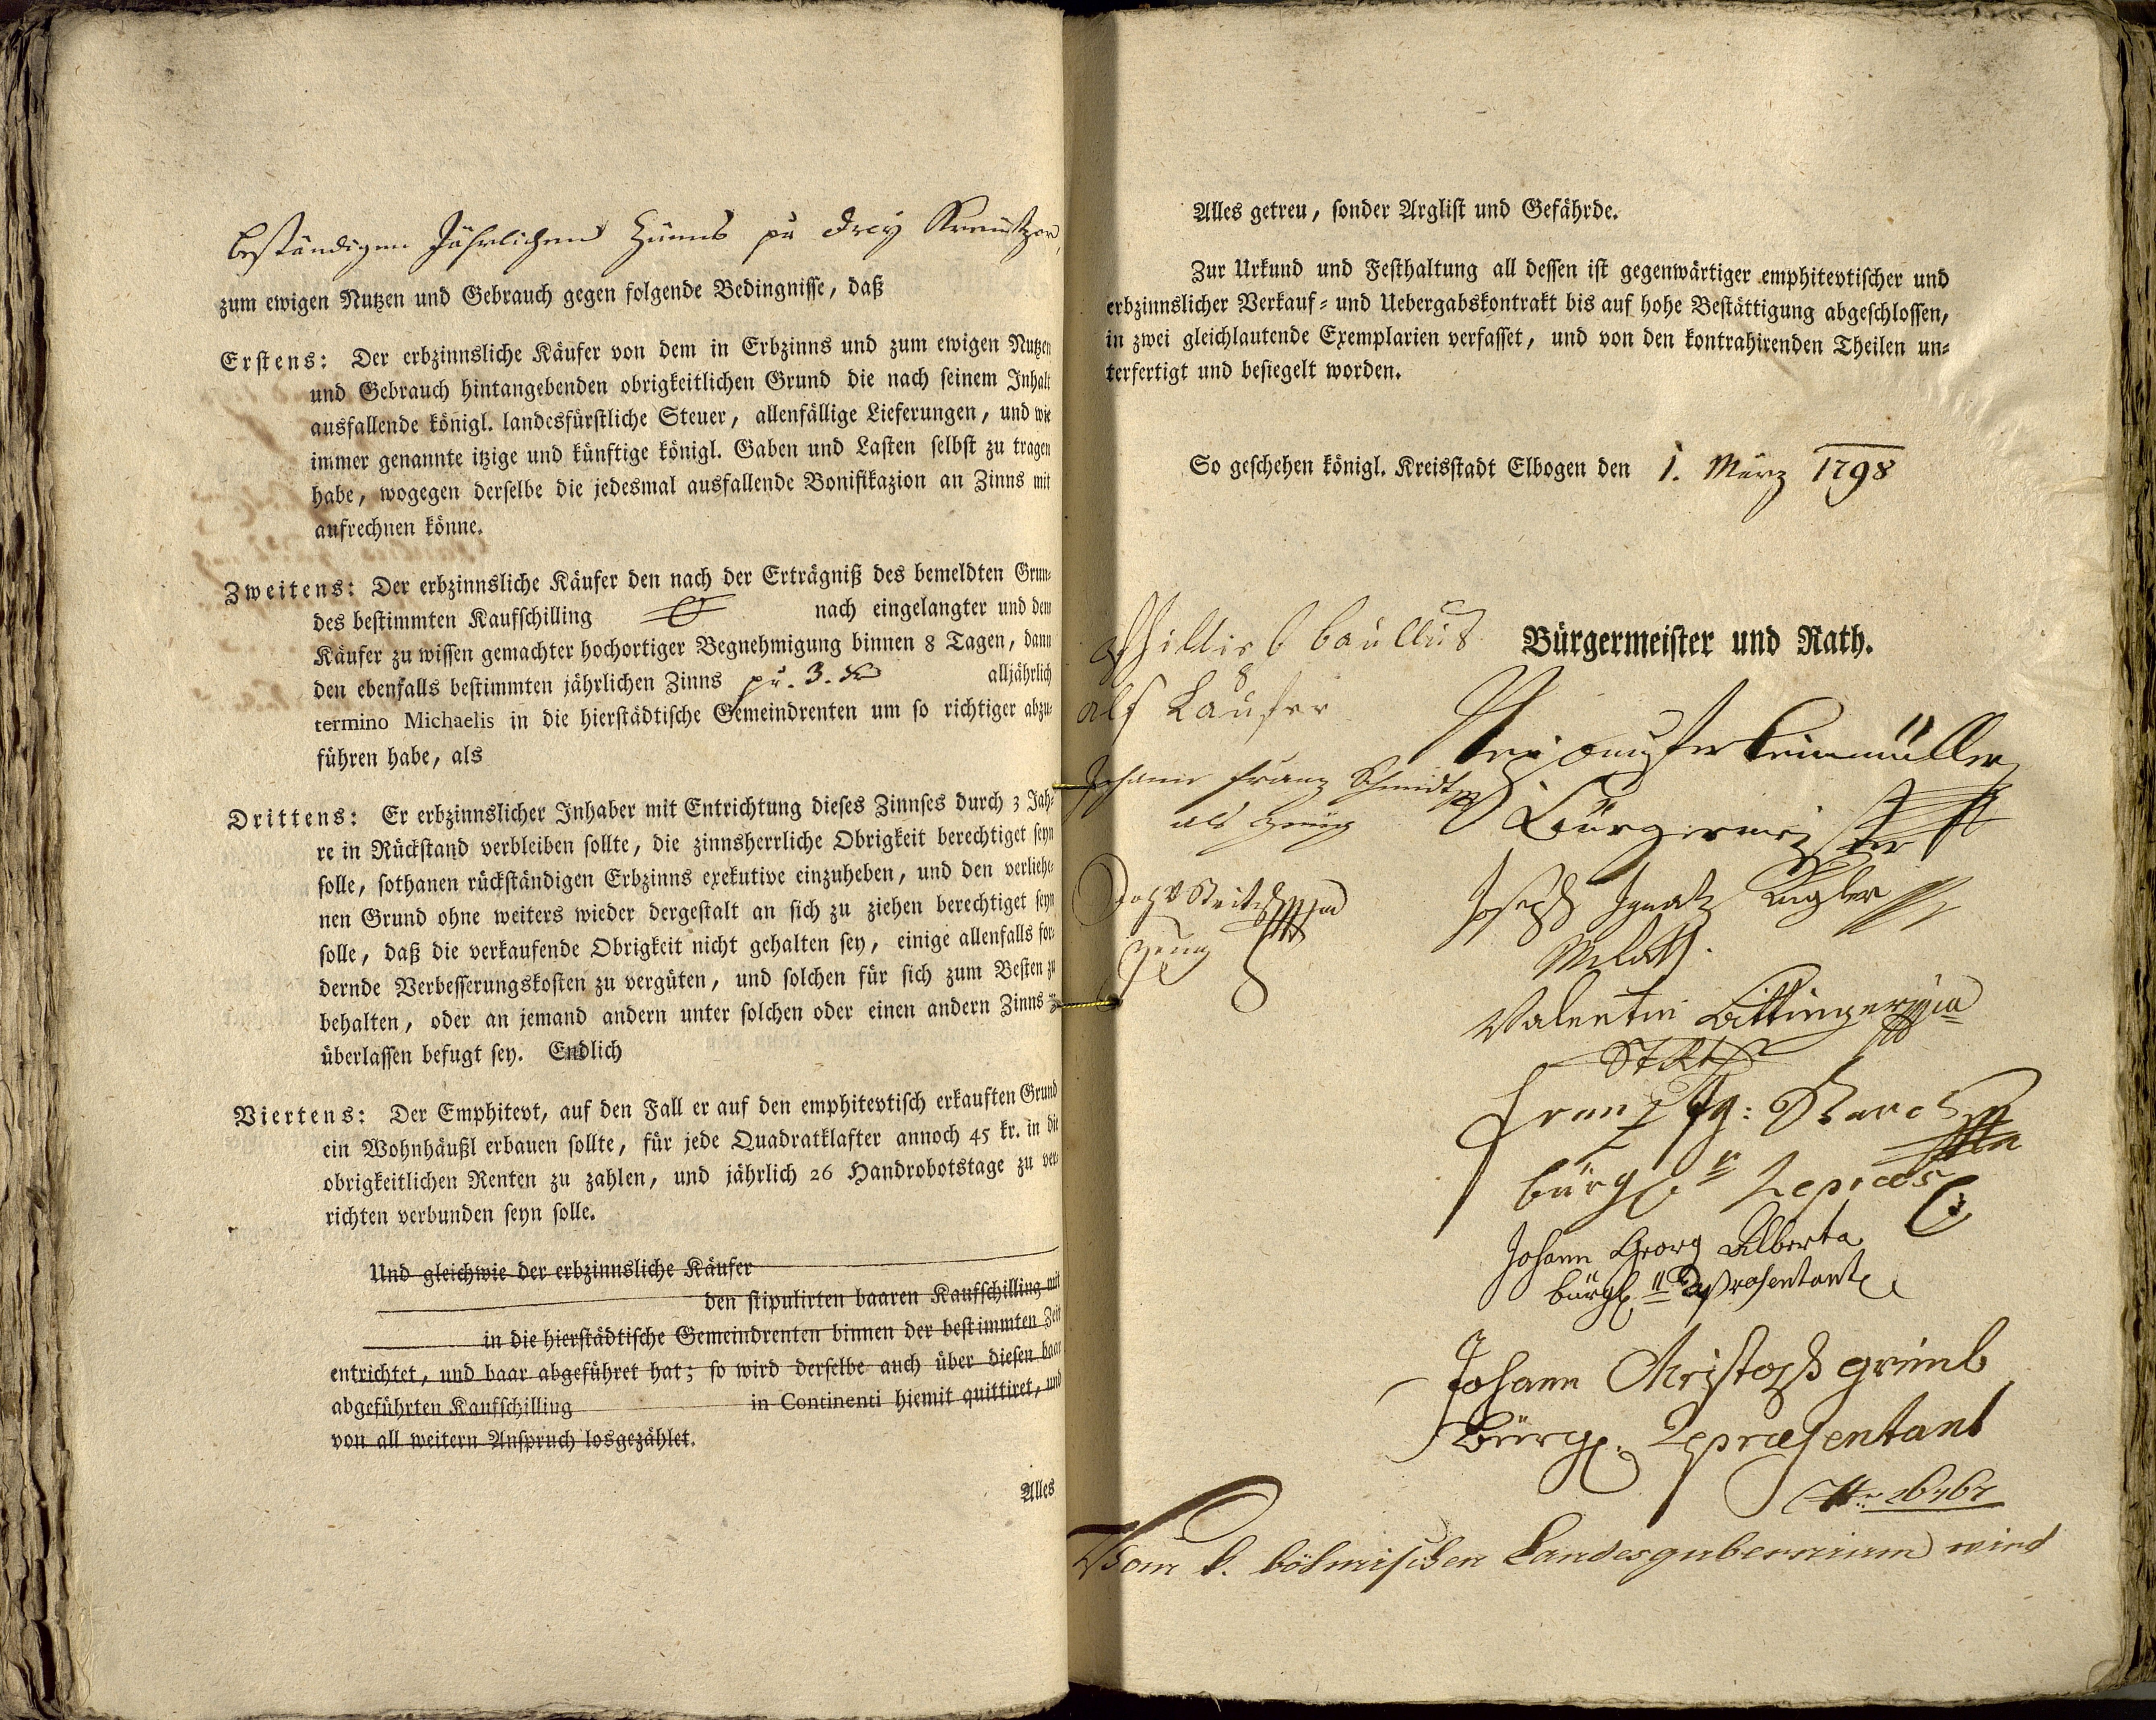 beständigen Jährlichen Zinns pr drey Kreutzer,
zum ewigen Nutzen und Gebrauch gegen folgende Bedingnisse, daß
Erstens: Der erbzinnsliche Käufer von dem in Erbzinns und zum ewigen Nutzen
und Gebrauch hintangebenden obrigkeitlichen Grund die nach seinem Inhalt
ausfallende königl. landesfürstliche Steuer, allenfällige Lieferungen, und wie
immer genannte itzige und künftige königl. Gaben und Lasten selbst zu tragen
habe, wogegen derselbe die jedesmal ausfallende Bonifikazion an Zinns mit
aufrechnen könne.
Zweitens: Der erbzinnsliche Käufer den nach der Erträgniß des bemeldten Grun-
des bestimmten Kaufschilling nach eingelangter und dem
Käufer zu wissen gemachter hochortiger Begnehmigung binnen 8 Tagen, dann
den ebenfalls bestimmten jährlichen Zinns pr. 3. kr alljährlich
termino Michaelis in die hierstädtische Gemeindrenten um so richtiger abzu-
führen habe, als
Drittens: Er erbzinnslicher Inhaber mit Entrichtung dieses Zinnses durch 3 Jah-
re in Rückstand verbleiben sollte, die zinnsherrliche Obrigkeit berechtiget seyn
solle, sothanen rückständigen Erbzinns exekutive einzuheben, und den verliehe-
nen Grund ohne weiters wieder dergestalt an sich zu ziehen berechtiget seyn
solle, daß die verkaufende Obrigkeit nicht gehalten sey, einige allenfalls for-
dernde Verbesserungskosten zu vergüten, und solchen für sich zum Besten zu
behalten, oder an jemand andern unter solchen oder einen andern Zinns zu
überlassen befugt sey. Endlich
Viertens: Der Emphitevt, auf den Fall er auf den emphitevtisch erkauften Grund
ein Wohnhäußl erbauen sollte, für jede Quadratklafter annoch 45 kr. in die
obrigkeitlichen Renten zu zahlen, und jährlich 26 Handrobotstage zu ver-
richten verbunden seyn solle.
Und gleichwie der erbzinnsliche Käufer
den stipulirten baaren Kaufschilling mit
in die hierstädtische Gemeindrenten binnen der bestimmten Zeit
entrichtet, und baar abgeführet hat; so wird derselbe auch über diesen baar
abgeführten Kaufschilling in Continenti hiemit quittiret, und
von all weitern Anspruch losgezählet.
Alles
Alles getreu, sonder Arglist und Gefährde.
Zur Urkund und Festhaltung all dessen ist gegenwärtiger emphitevtischer und
erbzinnslicher Verkauf- und Uebergabskontrakt bis auf hohe Bestättigung abgeschlossen,
in zwei gleichlautende Exemplarien verfasset, und von den kontrahirenden Theilen un-
terfertigt und besiegelt worden.
So geschehen königl. Kreisstadt Elbogen den 1. März 1798
Bürgermeister und Rath.
als Kaufer
Johann Franz Schmidt
als Zeug
Zeug
Bürgermeister
Joseph Ignatz Kugler
Valentin
Franz Ig:
bürgl.
Johann Georg Alberta
bürgl. Repräsentant
Johann Christoph
Bürgl. Repræsentant
Vom k. böhmischen Landesgubernium wird